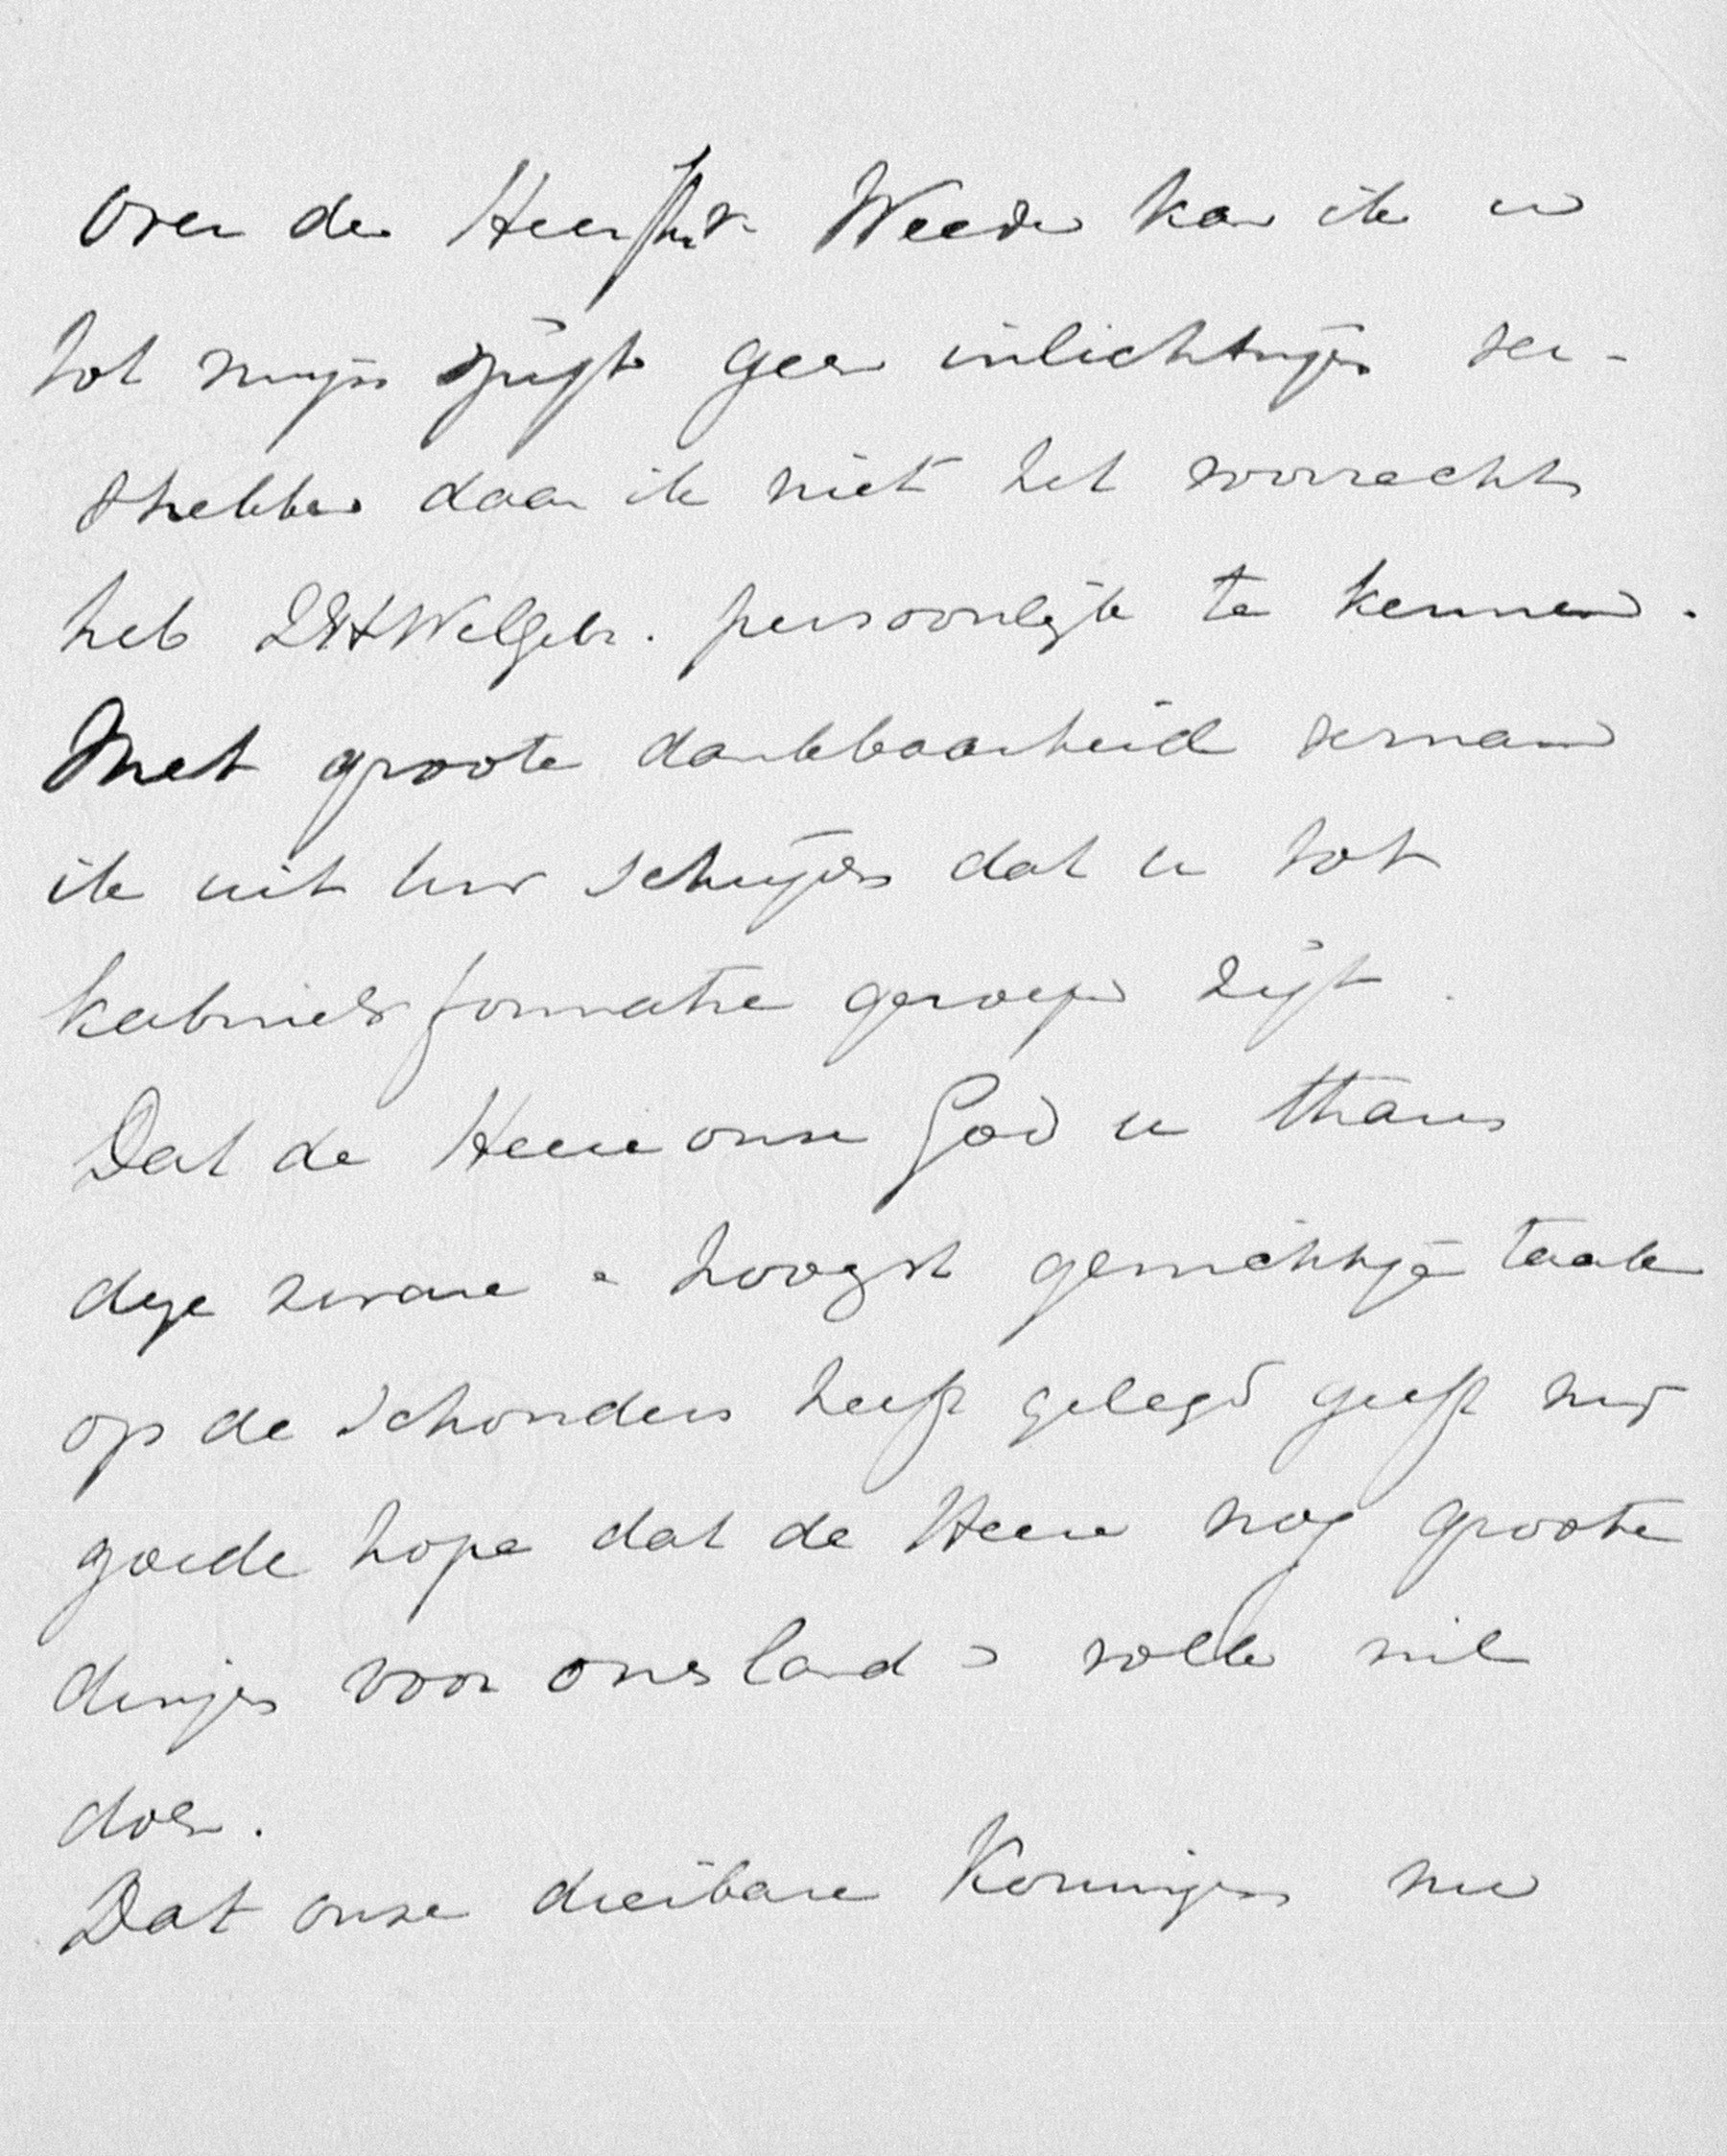 Over den Heer Jhr. v. Weede kan ik u
tot mijn spijt geen inlichtingen ver-
schebben daar ik niet het voorrecht
heb ZEHWelgeb. persoonlijk te kennen.
Met groote dankbaarheid vernam
ik uit uw schrijven dat u tot
kabinetsformatie geroepen zijt.
Dat de Heere onze God u thans
deze zware & hoogst gewichtige taak
op de schouders heeft gelegd geeft mij
goede hope dat de Heere nog groote
dingen voor ons land & volk wil
doen.
Dat onze dierbare Koningin nu